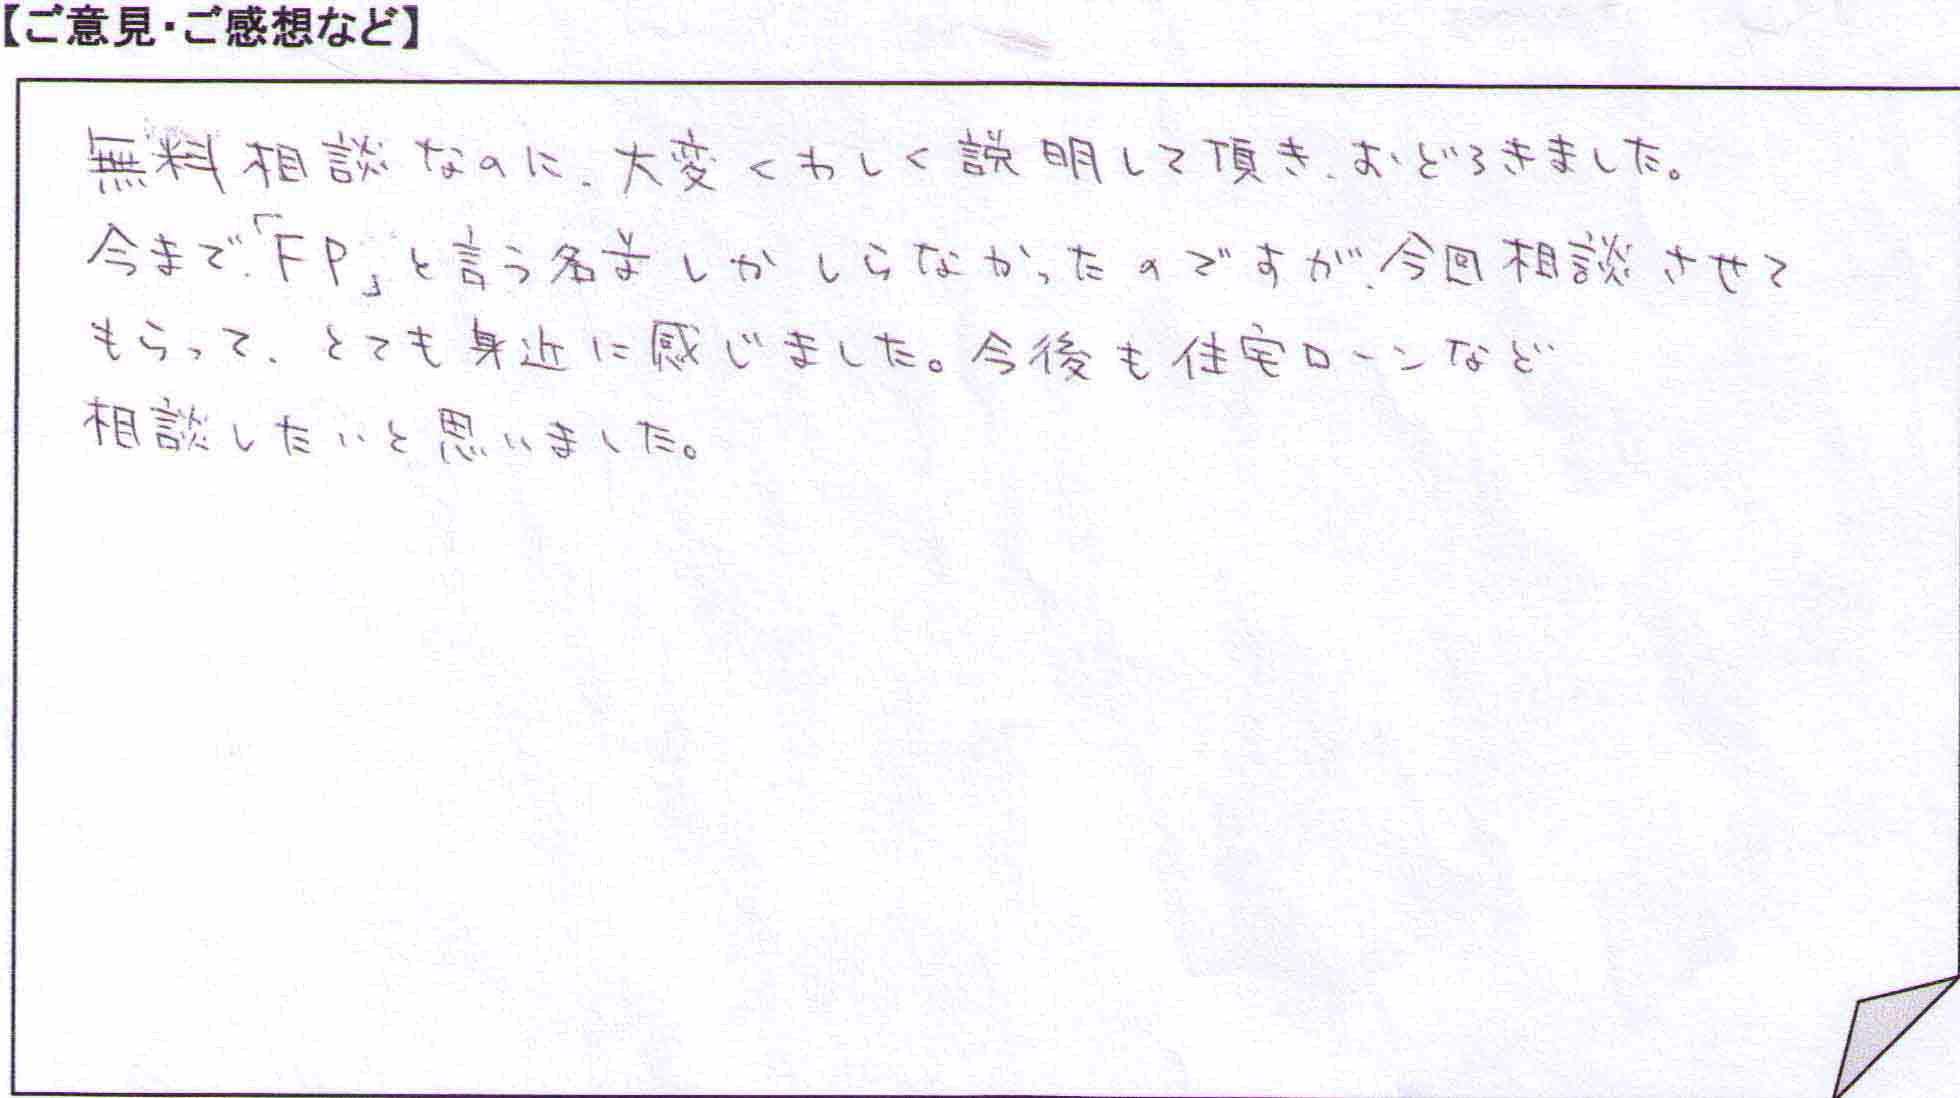 【ご意見・ご感想など】
無料相談なのに、大変くわしく説明して頂き、おどろきました。
今まで、「FP」と言う名前しかしらなかったのですが、今回相談させて
もらって、とても身近に感じました。今後も住宅ローンなど
相談したいと思いました。